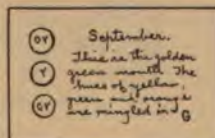 OY
September.
This is the golden
Y
green month. The
hues of yellow,
GY
green and orange
are mingled in G